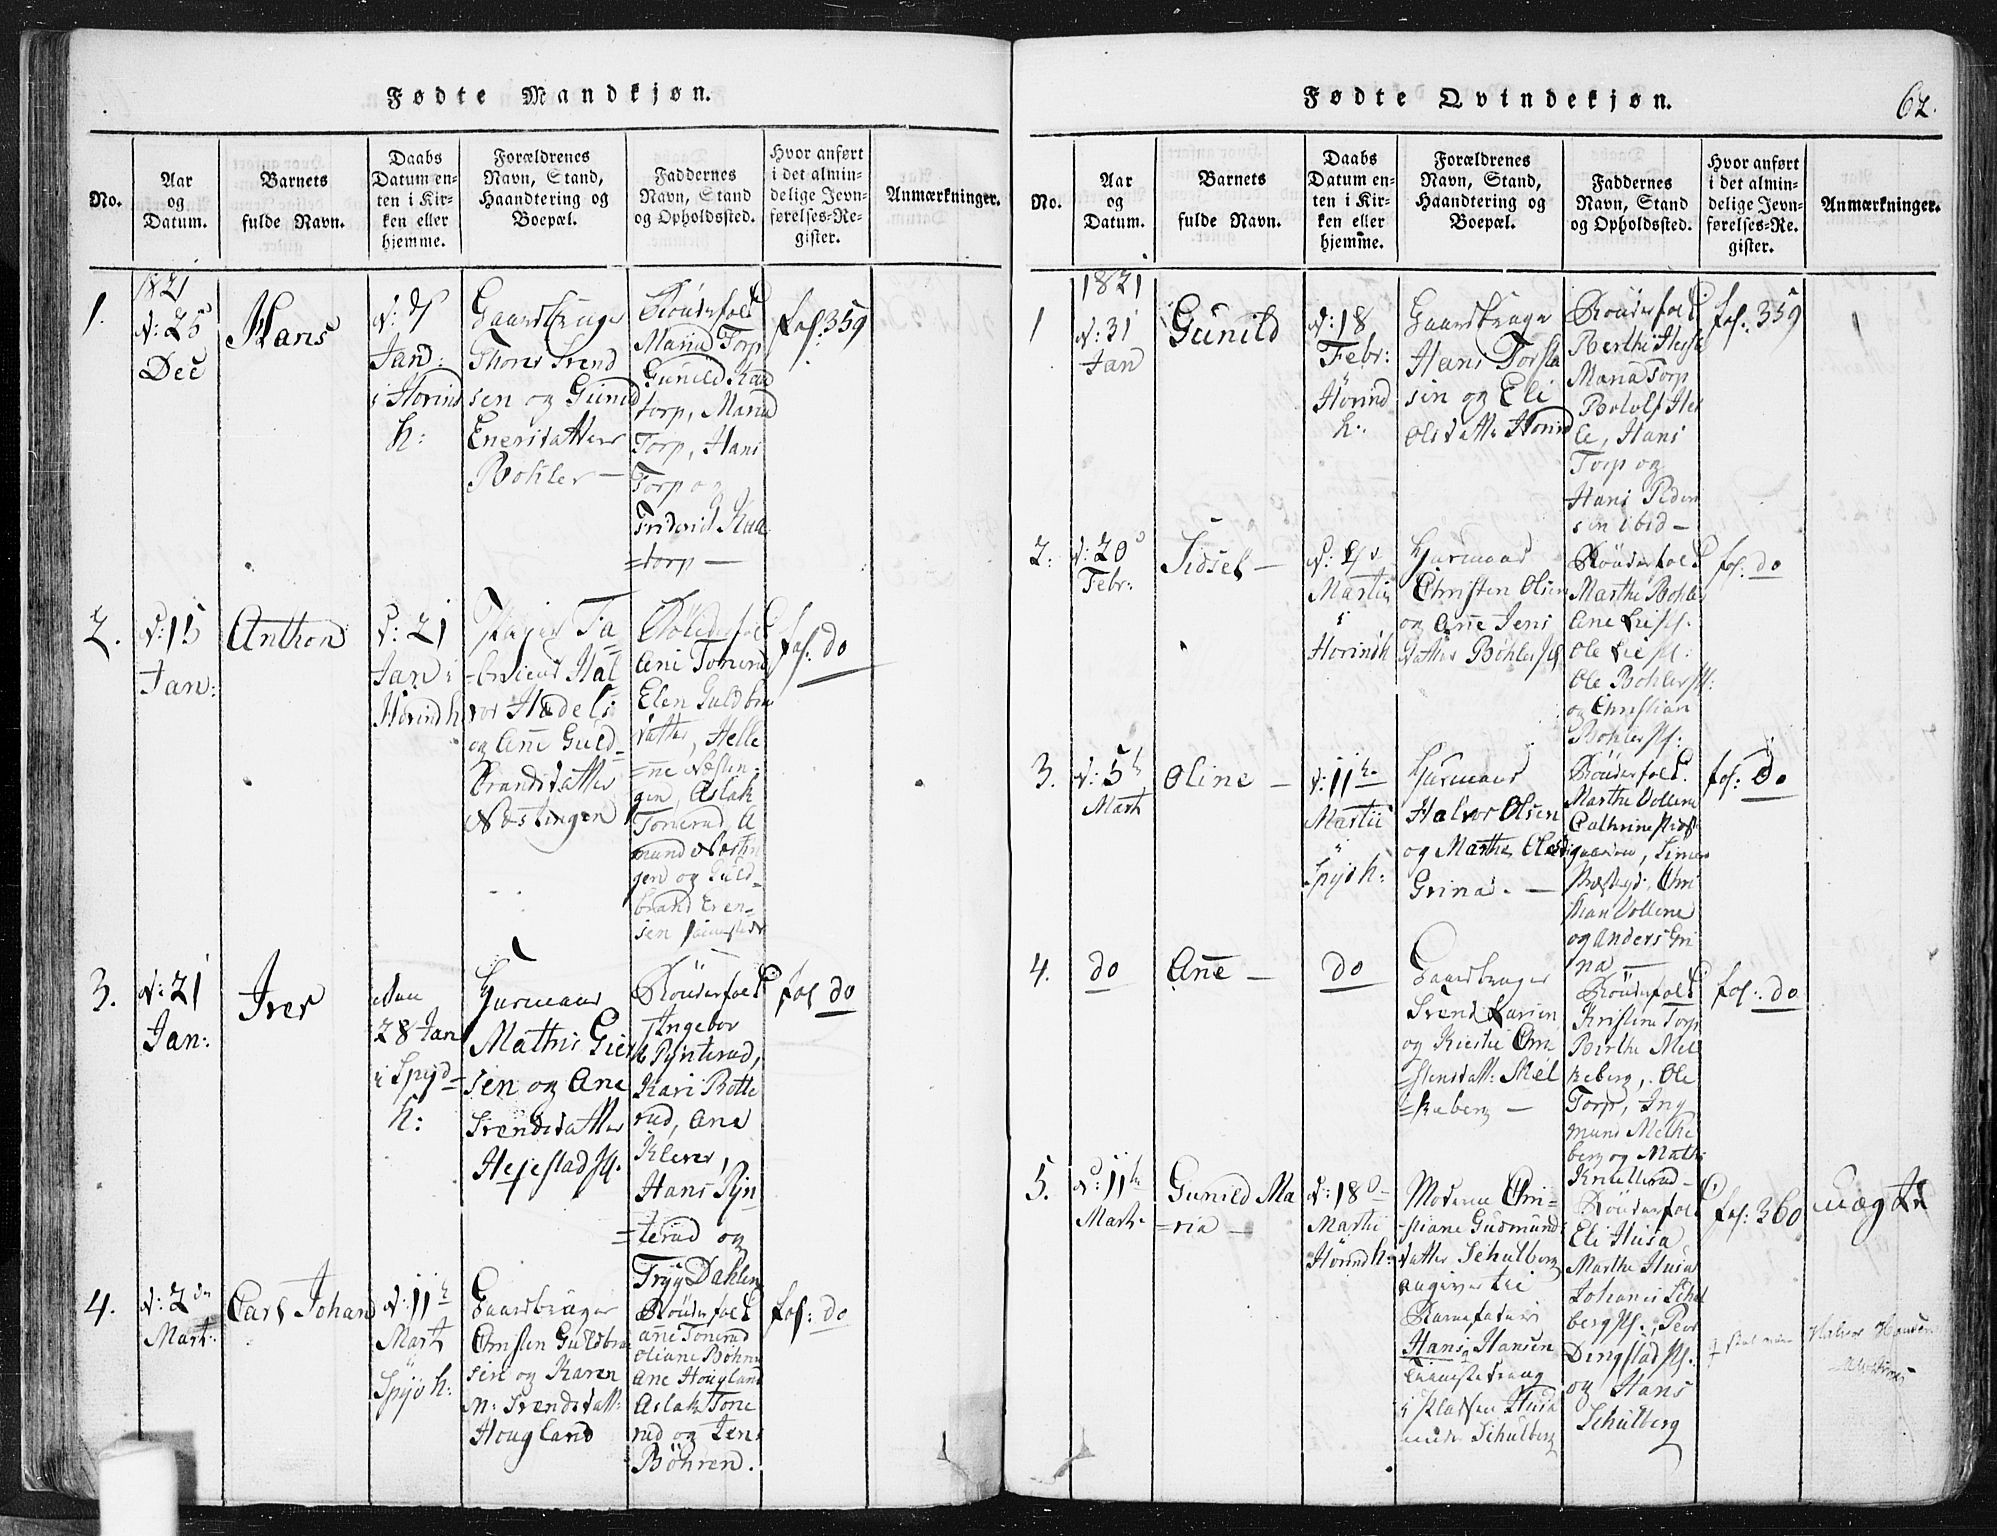 Fødte Mandkjøn.
No.
Aar
og
Datum.
Barnets
fulde Navn.
Daabs
Datum en-
ten i Kir-
ken eller
hjemme.
Forældrenes
Navn, Stand,
Haandtering og
Boepæl.
Faddernes
Navn, Stand
og Opholdssted.
Hvor anført
i det almin-
delige Jevn-
førelses-Re-
gister.
Anmærkninger.
1.
1821
d: 25
Dec
Hans
Jan:
i Horind
h:
Gaardbruger
Thorer Svend
sen og Gunild
Enersdatter
Bohler —
Maria Torp
Gunild Kaa
torp, Maria
Torp, Hans
Torp og
Friderich Kaa
=torp —
fol: 359
2.
d: 15
Jan:
Anthon
d: 21
Jan: i
Horindh
og Ane Guld=
brandsdatter
Næstingen
Ane Tonerud
Elen Guldbra
datter, Helle
=ne Næstin=
gen, Aslak
Tonerud, A
mund Næstin
gen og Guld=
brand Even=
sen
fol: do
3.
d: 21
Jan:
Iver
den
28 Jan
i Spyd=
h:
Huusmand
Mathis Gier
sen og Ane
Svendsdatter
Hejestad
Ingebor
Pynterud,
Kari Botte
rud, Ane
Klever,
Hans Pyn
=terud og
Tryg Dahlen
fol do
4.
d: 2den
Mart:
Carl Johan
d: 11te
Mart
i
Spyd h:
Gaardbruger
Christen Guldbra
sen og Karen
M: Svendsdatt:
Hougland
Ane Tonerud
Oliane Böhne
Ane Hougland
Aslak Tone
rud og Jens
Böhren.
fol: do
Fødte Qvindekjøn.
62.
No.
Aar
og
Datum.
Barnets
fulde Navn.
Daabs
Datum en-
ten i Kir-
ken eller
hjemme.
Forældrenes
Navn, Stand,
Haandtering og
Boepæl.
Faddernes
Navn, Stand
og Opholdssted.
Hvor anført
i det almin-
delige Jevn-
førelses-Re-
gister.
Anmærkninger.
1
1821
d: 31
Jan
Gunild
d: 18
Febr:
Hörind
h:
Gaardbruger
Hans Torste
sen og Eli
Olsdatter Horind
Berthe Hesle
Maria Torp
Botolf Hes
le, Hans
Torp og
Hans Peder
sen ibid —
fol: 359
2:
d: 20
Febr:
Sidsel —
Martii
i
Horindh
Huusmand
Christen Olsen
og Ane Jens
datter Böhler
Marthe Bohler
Ane Lie
Ole Lie
Ole Bohler
og Christian
Bohler
fol: do
3.
d: 5te
Mart
Oline —
d: 11te
Martii
i
Spyd h:
Huusmand
Halvor Olsen
og Marthe Olesd
Grina. —
Marthe Vollene
Cathrine
Christian Vollene
og Anders Gri
na —
fol: do
4.
do
Ane —
do
Gaardbruger
Svend Larsen
og Kirstie Chri
stensdatt: Mel
=keberg —
Kristine Torp
Birthe Mel
keberg, Ole
Torp, Ing
mund Melke
berg og Mathi
Knullerud —
fol: do
5.
d: 11te
Mart.
Gunild Ma
=ria —
d: 18de
Martii
Hörindh:
Moderen Chri-
stiane Gudmund
datter Schulberg
angiver til
Barnefader
Hans Hansen
i Pladsen Husa
under Schulberg
Eli Husa
Marthe Husa
Johanes Schul
berg, Peder
Dingstad
og Hans
Schulberg
fol: 360
uægte
Halvor Hansen